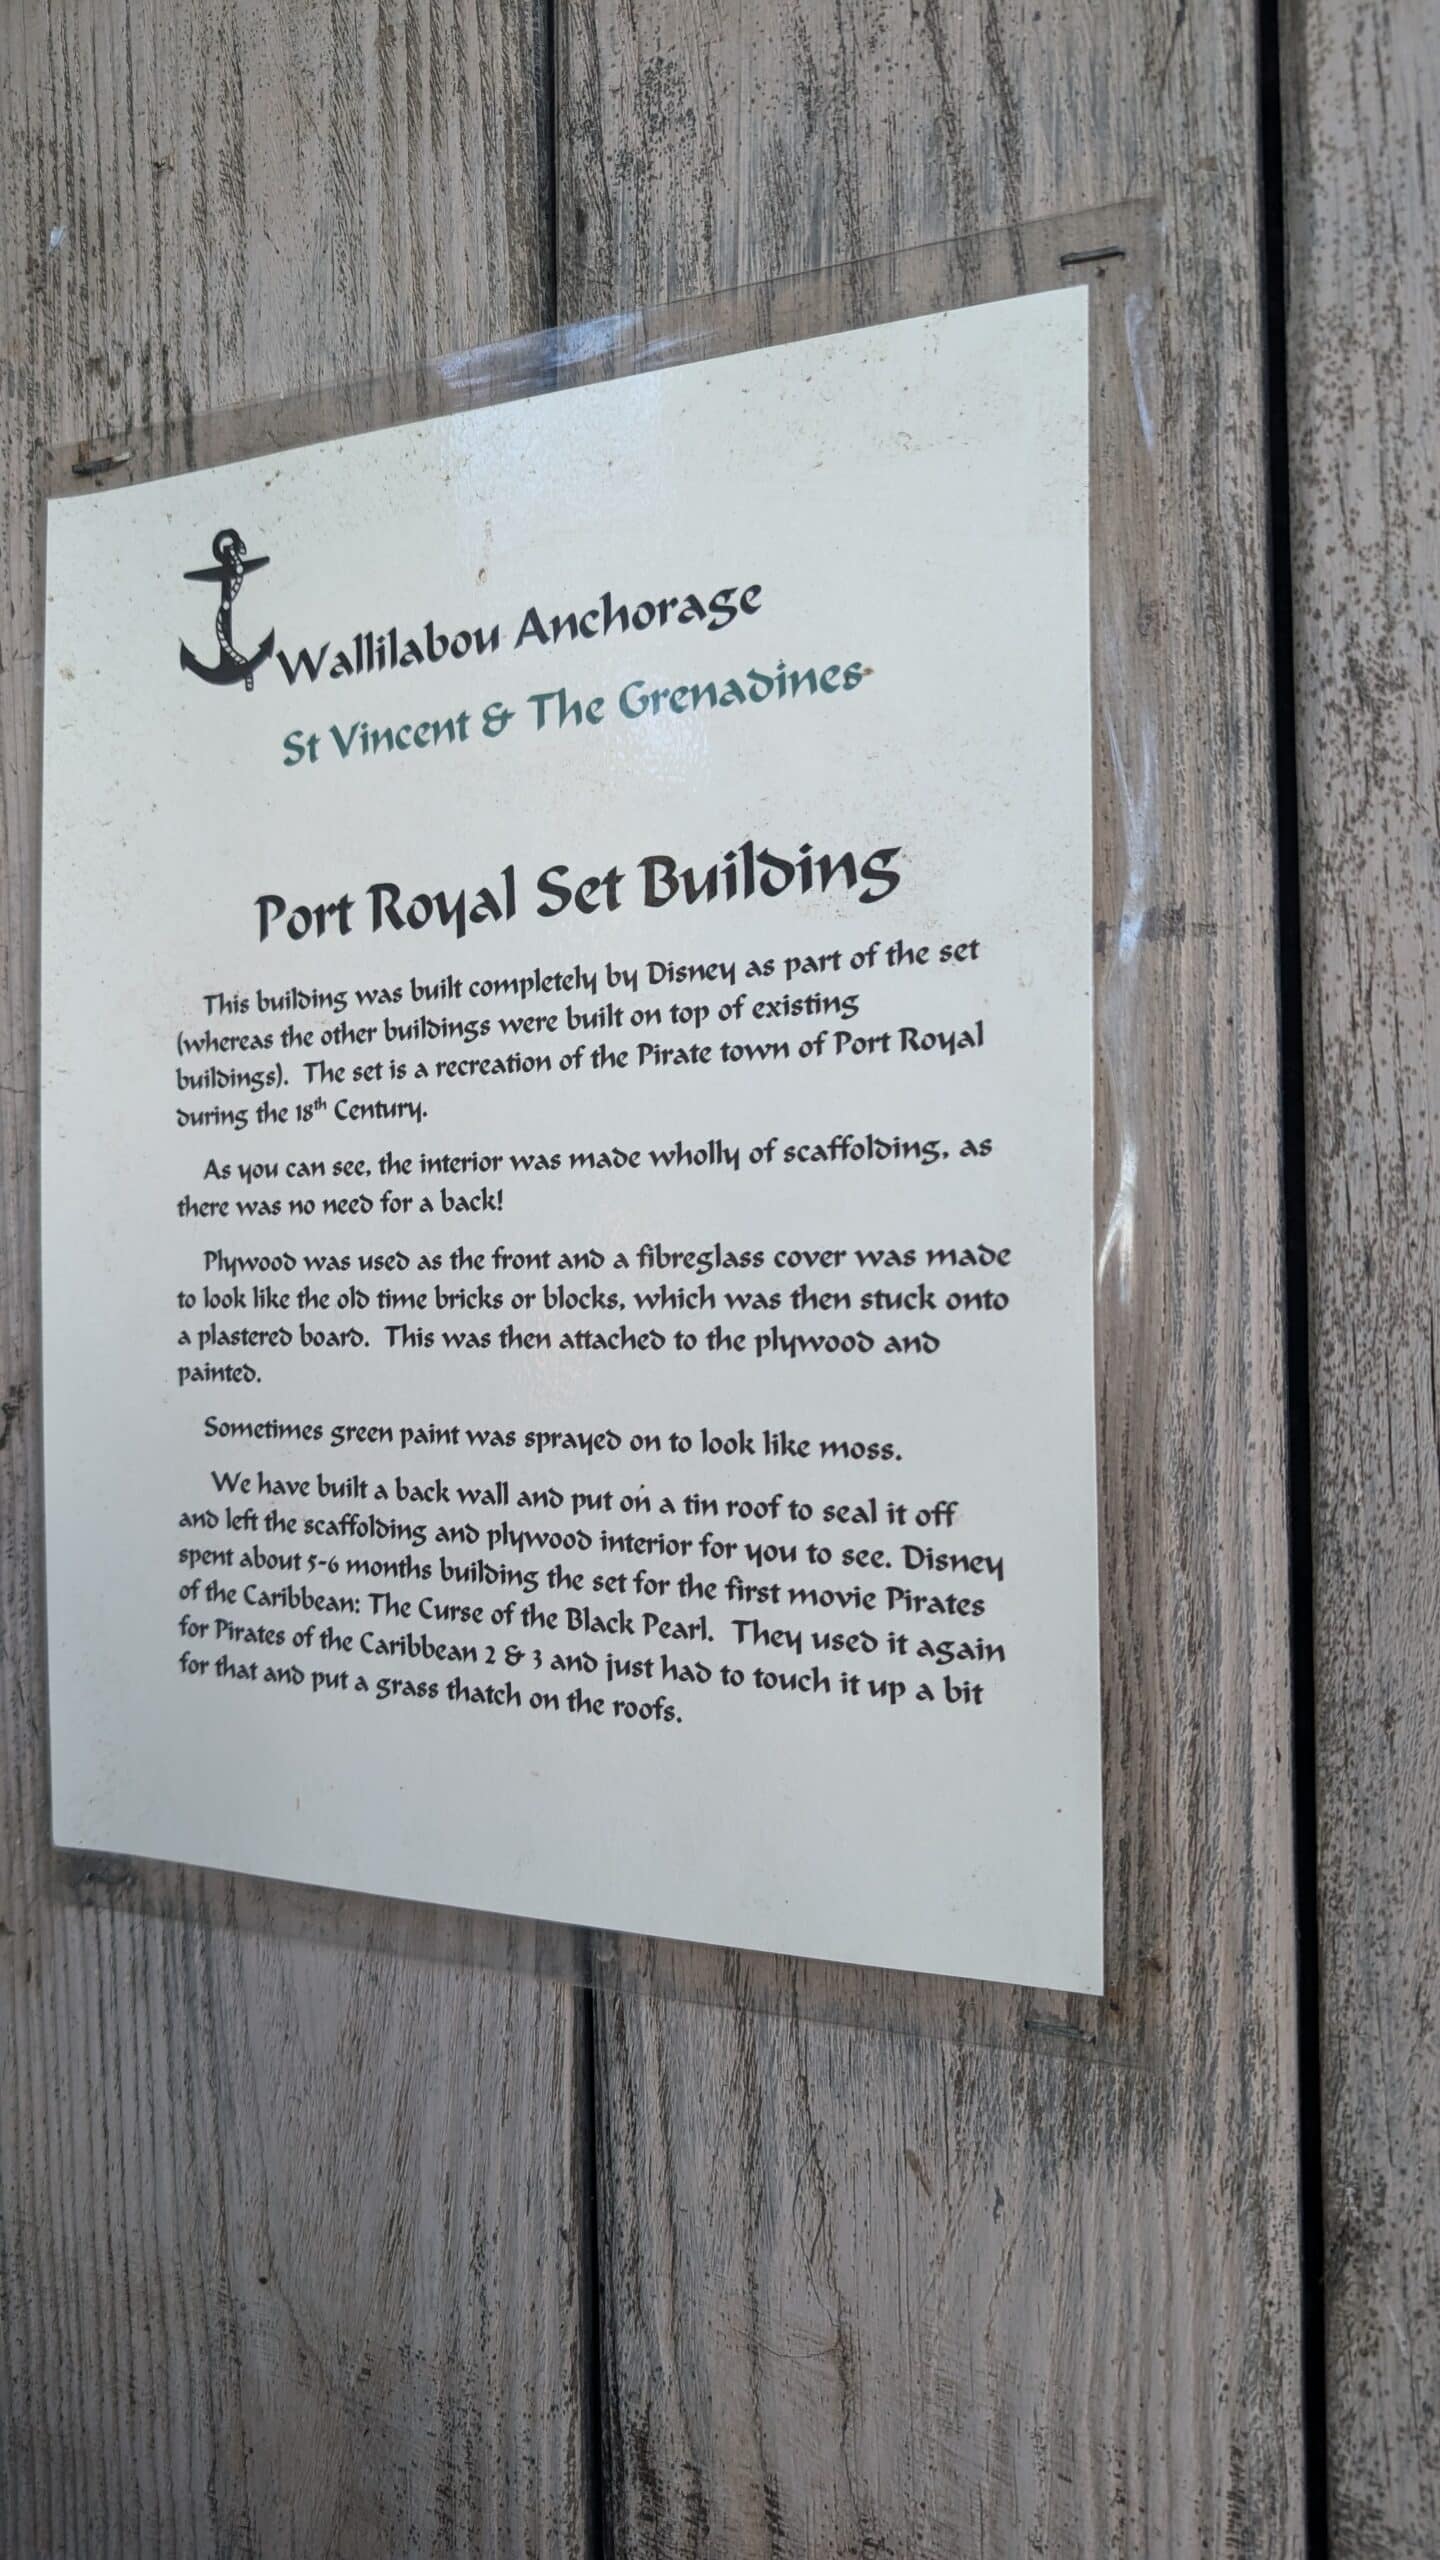 Wallilabou Anchorage
St Vincent & The Grenadines
Port Royal Set Building
This building was built completely by Disney as part of the set
(whereas the other buildings were built on top of existing
buildings).  The set is a recreation of the Pirate town of Port Royal
during the 18th Century.
As you can see, the interior was made wholly of scaffolding, as
there was no need for a back!
Plywood was used as the front and a fibreglass cover was made
to look like the old time bricks or blocks, which was then stuck onto
a plastered board.  This was then attached to the plywood and
painted.
Sometimes green paint was sprayed on to look like moss.
We have built a back wall and put on a tin roof to seal it off
and left the scaffolding and plywood interior for you to see. Disney
spent about 5-6 months building the set for the first movie Pirates
of the Caribbean: The Curse of the Black Pearl.  They used it again
for Pirates of the Caribbean 2 & 3 and just had to touch it up a bit
for that and put a grass thatch on the roofs.